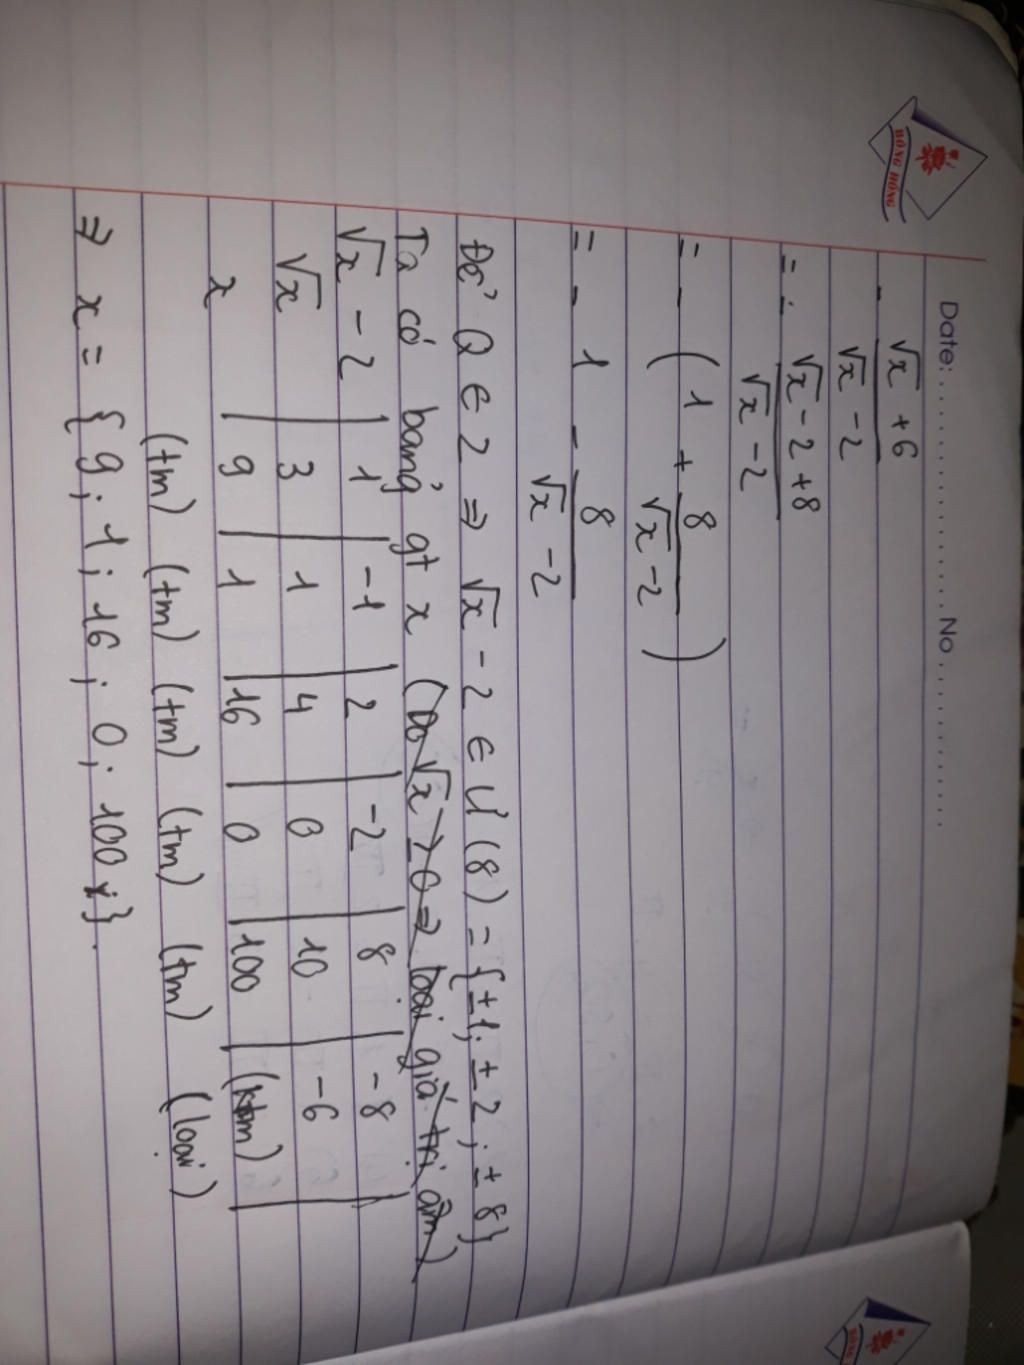 HỒNG HỒNG
Date: .......................... No ....................
- √x + 6 / √x - 2
= - √x - 2 + 8 / √x - 2
= - ( 1 + 8 / √x - 2 )
= - 1 - 8 / √x - 2
Để Q ∈ Z ⇒ √x - 2 ∈ Ư (8) = {±1; ±2; ±8}
Ta có bảng gt x (Do √x > 0 ⇒ loại giá trị âm)
√x - 2 | 1 | -1 | 2 | -2 | 8 | -8 |
√x | 3 | 1 | 4 | 0 | 10 | -6
x | 9 | 1 | 16 | 0 | 100 | (ktm)
(tm) (tm) (tm) (tm) (tm) (loại)
⇒ x = { 9; 1; 16; 0; 100 }.
HỒNG